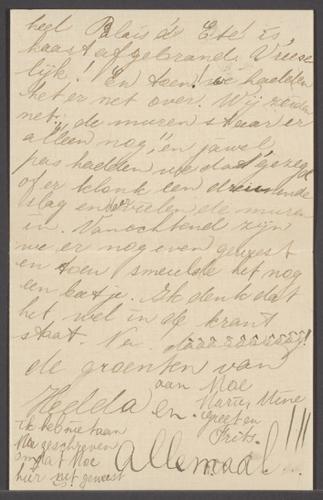 heel Palais d'Eté is
haast afgebrand. Vreese
lijk! En toen! we hadden
het er net over. Wij zeiden
net: de muren staan er
alleen nog! en jawel
pas hadden we dat gezegd
of er klonk een dreunende
slag en vielen de muren
in. Vanochtend zijn
we er nog even geweest
en toen smeulde het nog
een beetje. Ik denk dat
het wel in de krant
staat. Nu
de groenten van
Hedda en
aan Moe
Marie, Mine
Greet en
Frits.
allemaal!!!
ik heb niet aan
Moe geschreven
omdat Moe
hier net geweest